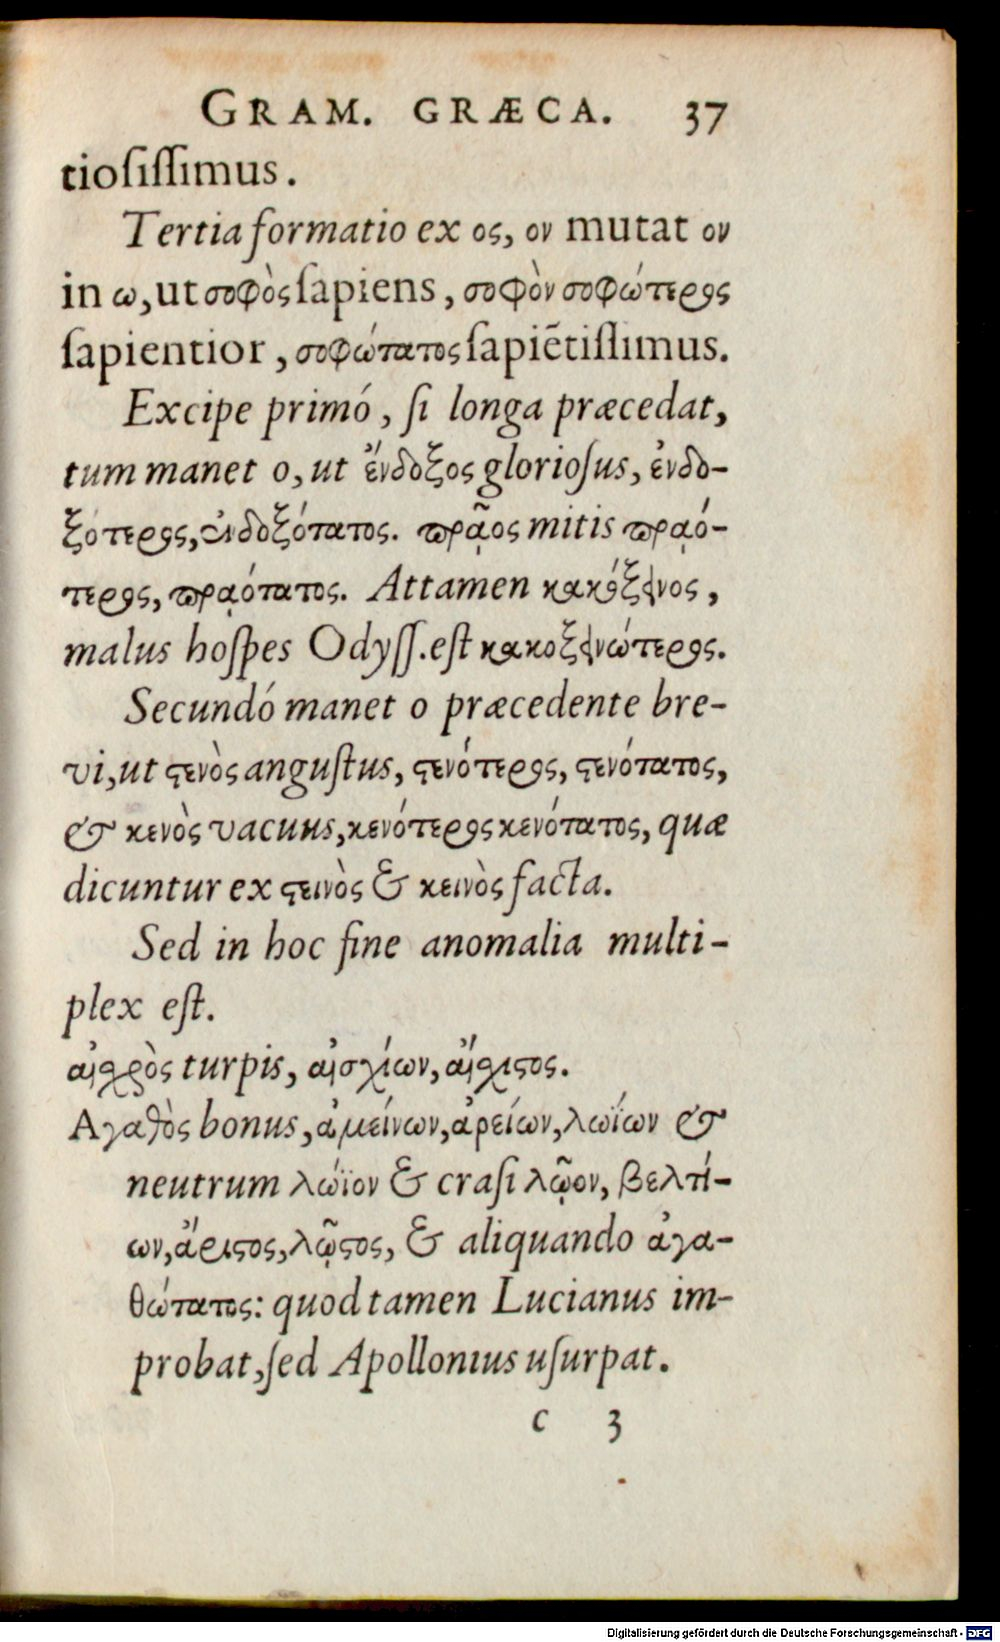 GRAM. GRÆCA. 37
tioſiſſimus.
Tertia formatio ex ος, ον mutat ον
in ω, ut σοφὸς ſapiens, σοφὸν σοφώτερος
ſapientior, σοφώτατος ſapiẽtiſſimus.
Excipe primó, ſi longa præcedat,
tum manet ο, ut ἔνδοξος glorioſus, ἐνδο-
ξότερος, ἐνδοξότατος. πρᾷος mitis πρᾳό-
τερος, πρᾳότατος. Attamen κακόξεινος,
malus hoſpes Odyſſ. eſt κακοξεινώτερος.
Secundó manet ο præcedente bre-
vi, ut ϛενὸς anguſtus, ϛενότερος, ϛενότατος,
& κενὸς vacuus, κενότερος κενότατος, quæ
dicuntur ex ϛεινὸς & κεινὸς facta.
Sed in hoc fine anomalia multi-
plex eſt.
αἰσχρὸς turpis, αἰσχίων, αἴσχιϛος.
Αγαθὸς bonus, ἀμείνων, ἀρείων, λωΐων &
neutrum λώϊον & craſi λῷον, βελτί-
ων, ἄριϛος, λῷϛος, & aliquando ἀγα-
θώτατος: quod tamen Lucianus im-
probat, ſed Apollonius uſurpat.
C 3
Digitalisierung gefördert durch die Deutsche Forschungsgemeinschaft - DFG